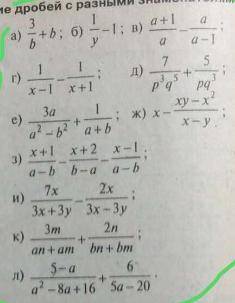 ие дробей с разными знаменателями
а) 3/b + b; б) 1/y − 1; в) (a+1)/a − a/(a−1);
г) 1/(x−1) − 1/(x+1); д) 7/(p³q⁵) + 5/(pq³);
е) 3a/(a²−b²) + 1/(a+b); ж) x − (xy−x²)/(x−y);
з) (x+1)/(a−b) − (x+2)/(b−a) − (x−1)/(a−b);
и) 7x/(3x+3y) − 2x/(3x−3y);
к) 3m/(an+am) + 2n/(bn+bm);
л) (5−a)/(a²−8a+16) + 6/(5a−20).